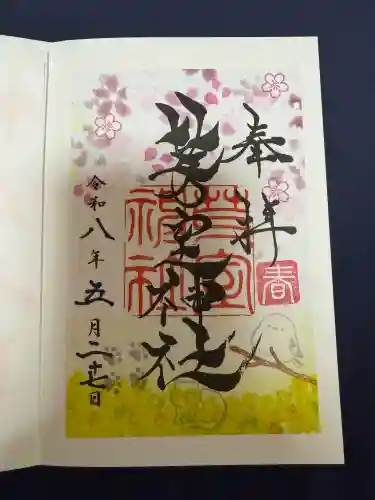 奉拝
春
芽室神社
芽室
神社
令和八年五月二十七日